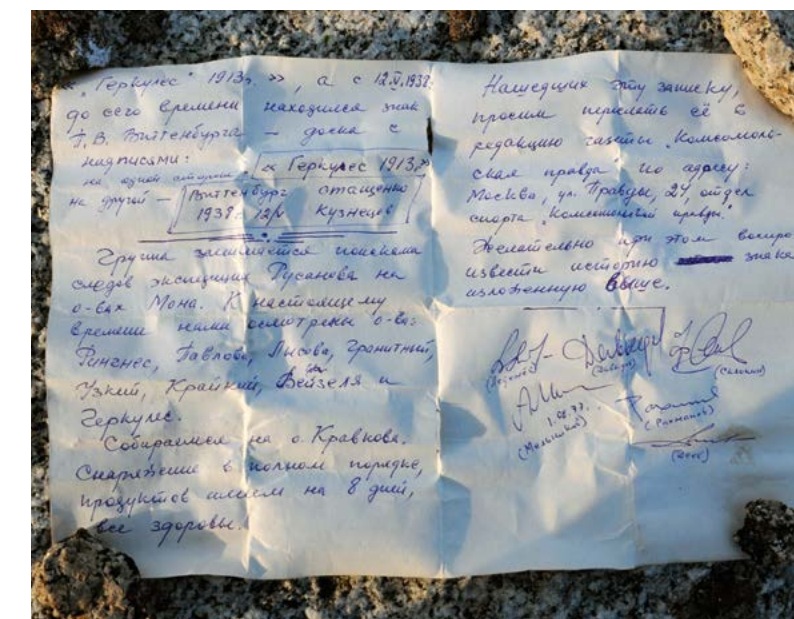 « "Геркулес" 1913г. », а с 12.V.1938г.
до сего времени находился знак
П. В. Виттенбурга – доска с
надписями:
на одной стороне « Геркулес 1913г.»
на другой – Виттенбург стащено
1938г. 12/V Кузнецов
Группа занимается поисками
следов экспедиции Русанова на
о-вах Мона. К настоящему
времени нами осмотрены о-ва:
Рингнес, Павлова, Лысова, Гранитный,
Узкий, Крайний, Вейзеля и
Геркулес.
Собираемся на о. Кравкова.
Снаряжение в полном порядке,
продуктов имеем на 8 дней,
все здоровы.
Нашедших эту записку,
просим переслать её в
редакцию газеты "Комсомоль-
ская правда" по адресу:
Москва, ул. Правды, 24, отдел
спорта "Комсомольской правды".
Желательно при этом воспро
извести историю знака
изложенную выше.
Давыдов
(Салахов)
1.08.77.
(Мельников)
(Рахманов)